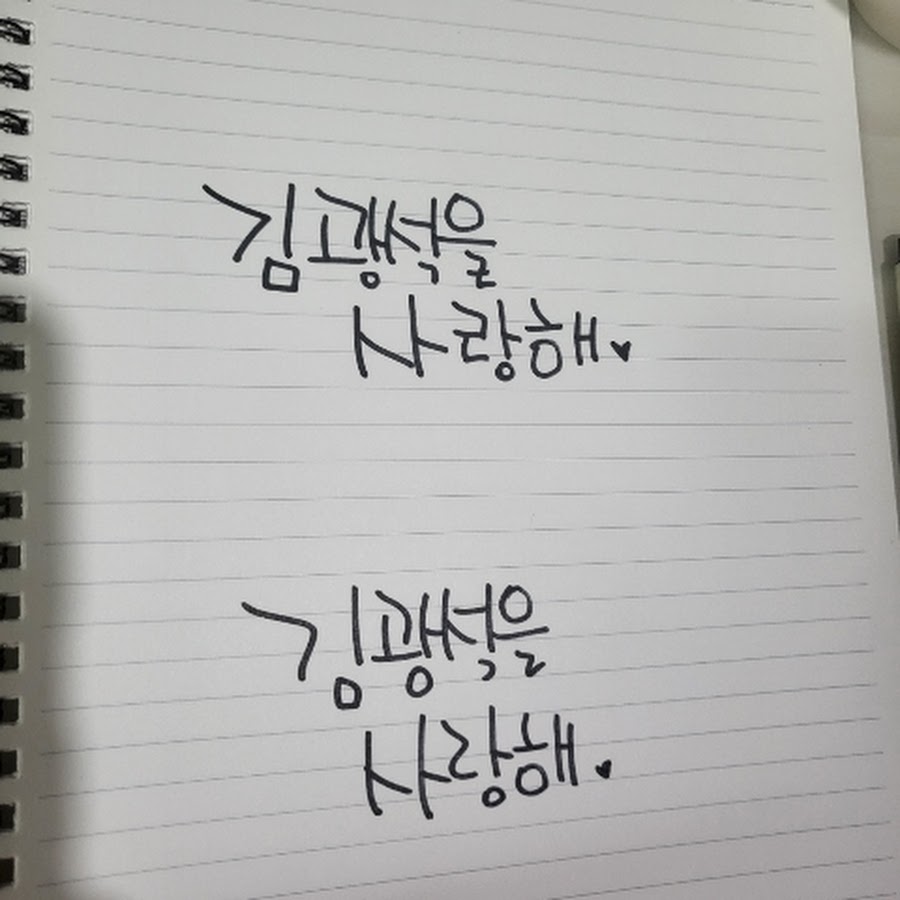 김광석을
사랑해♥
김광석을
사랑해♥